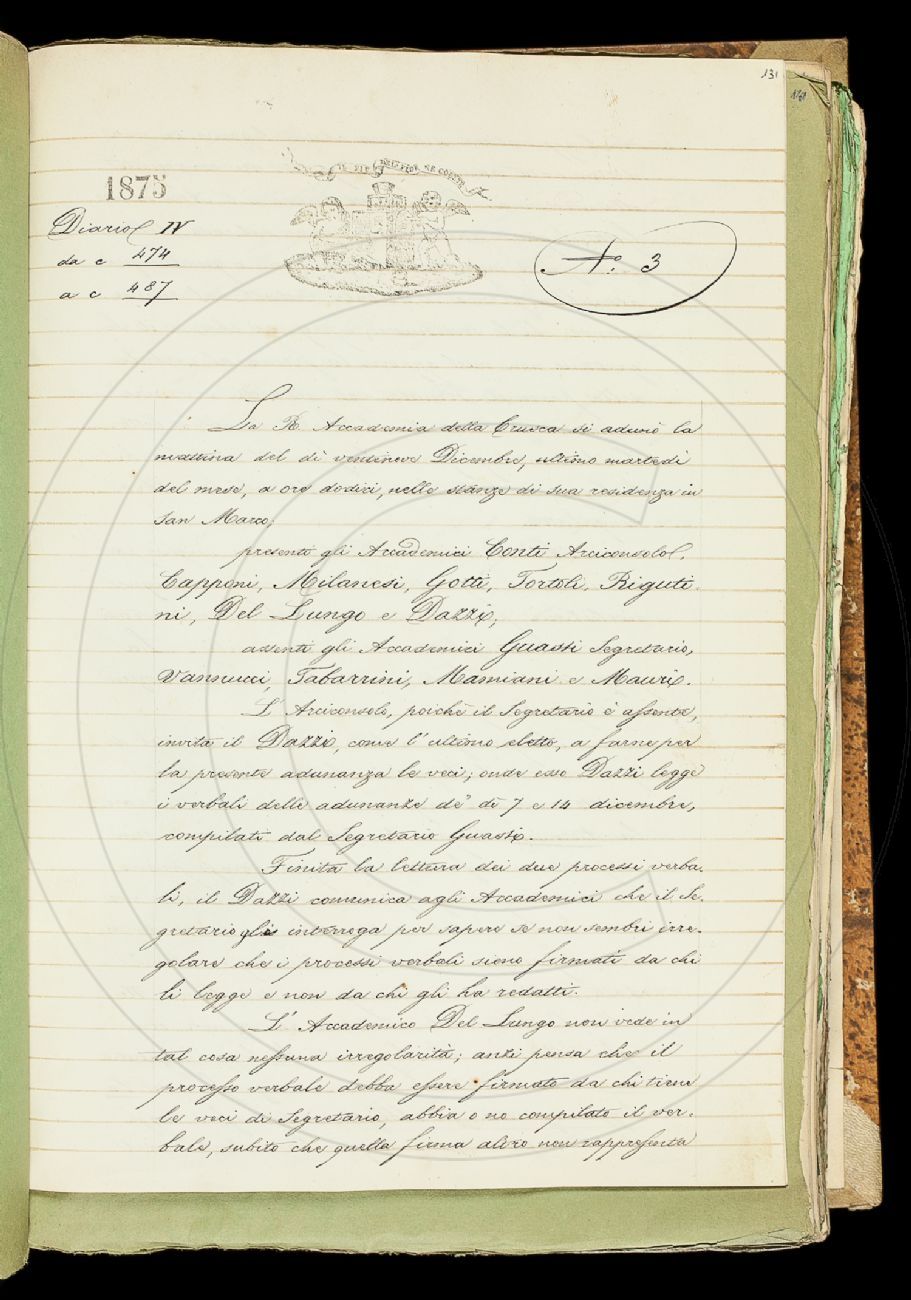 131
1875
Diario IV
da c 474
a c 487
IL PIÙ BEL FIOR NE COGLIE
N.º 3
La R. Accademia della Crusca si adunò la
mattina del dì ventinove Dicembre, ultimo martedì
del mese, a ore dodici, nelle stanze di sua residenza in
San Marco;
presenti gli Accademici Conti Arciconsolo,
Capponi, Milanesi, Gotti, Tortoli, Riguti-
ni, Del Lungo e Dazzi;
assenti gli Accademici Guasti Segretario,
Vannucci, Tabarrini, Mamiani e Mauri.
L'Arciconsolo, poichè il Segretario è assente,
invita il Dazzi, come l'ultimo eletto, a farne per
la presente adunanza le veci; onde esso Dazzi legge
i verbali delle adunanze de' dì 7 e 14 dicembre,
compilati dal Segretario Guasti.
Finita la lettura dei due processi verba-
li, il Dazzi comunica agli Accademici che il Se-
gretario gli interroga per sapere se non sembri irre-
golare che i processi verbali sieno firmati da chi
li legge e non da chi gli ha redatti.
L'Accademico Del Lungo non vede in
tal cosa nessuna irregolarità; anzi pensa che il
processo verbale debba essere firmato da chi tiene
le veci di Segretario, abbia o no compilato il ver-
bale, subito che quella firma altro non rappresenta